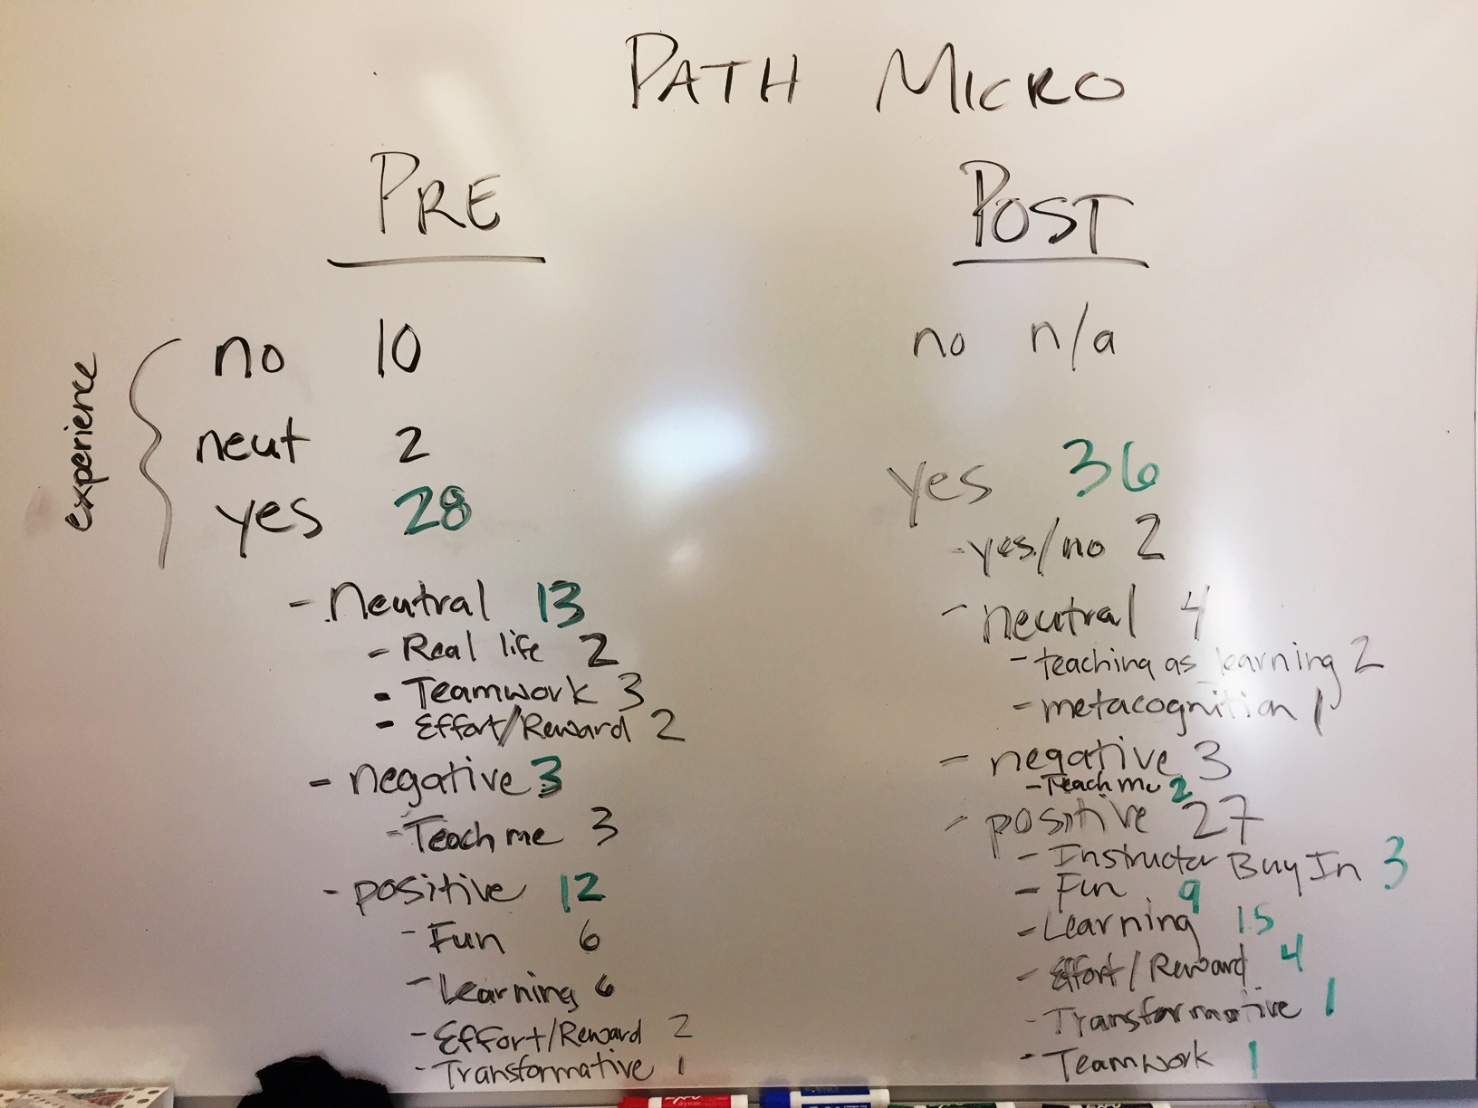 PATH MICRO
PRE
experience
no 10
neut 2
yes 28
- Neutral 13
- Real life 2
- Teamwork 3
- Effort/Reward 2
- negative 3
- Teach me 3
- positive 12
- Fun 6
- Learning 6
- Effort/Reward 2
- Transformative 1
POST
no n/a
yes 36
- yes/no 2
- neutral 4
- teaching as learning 2
- metacognition 1
- negative 3
- Teach me 2
- positive 27
- Instructor Buy In 3
- Fun 9
- Learning 15
- Effort/Reward 4
- Transformative 1
- Teamwork 1